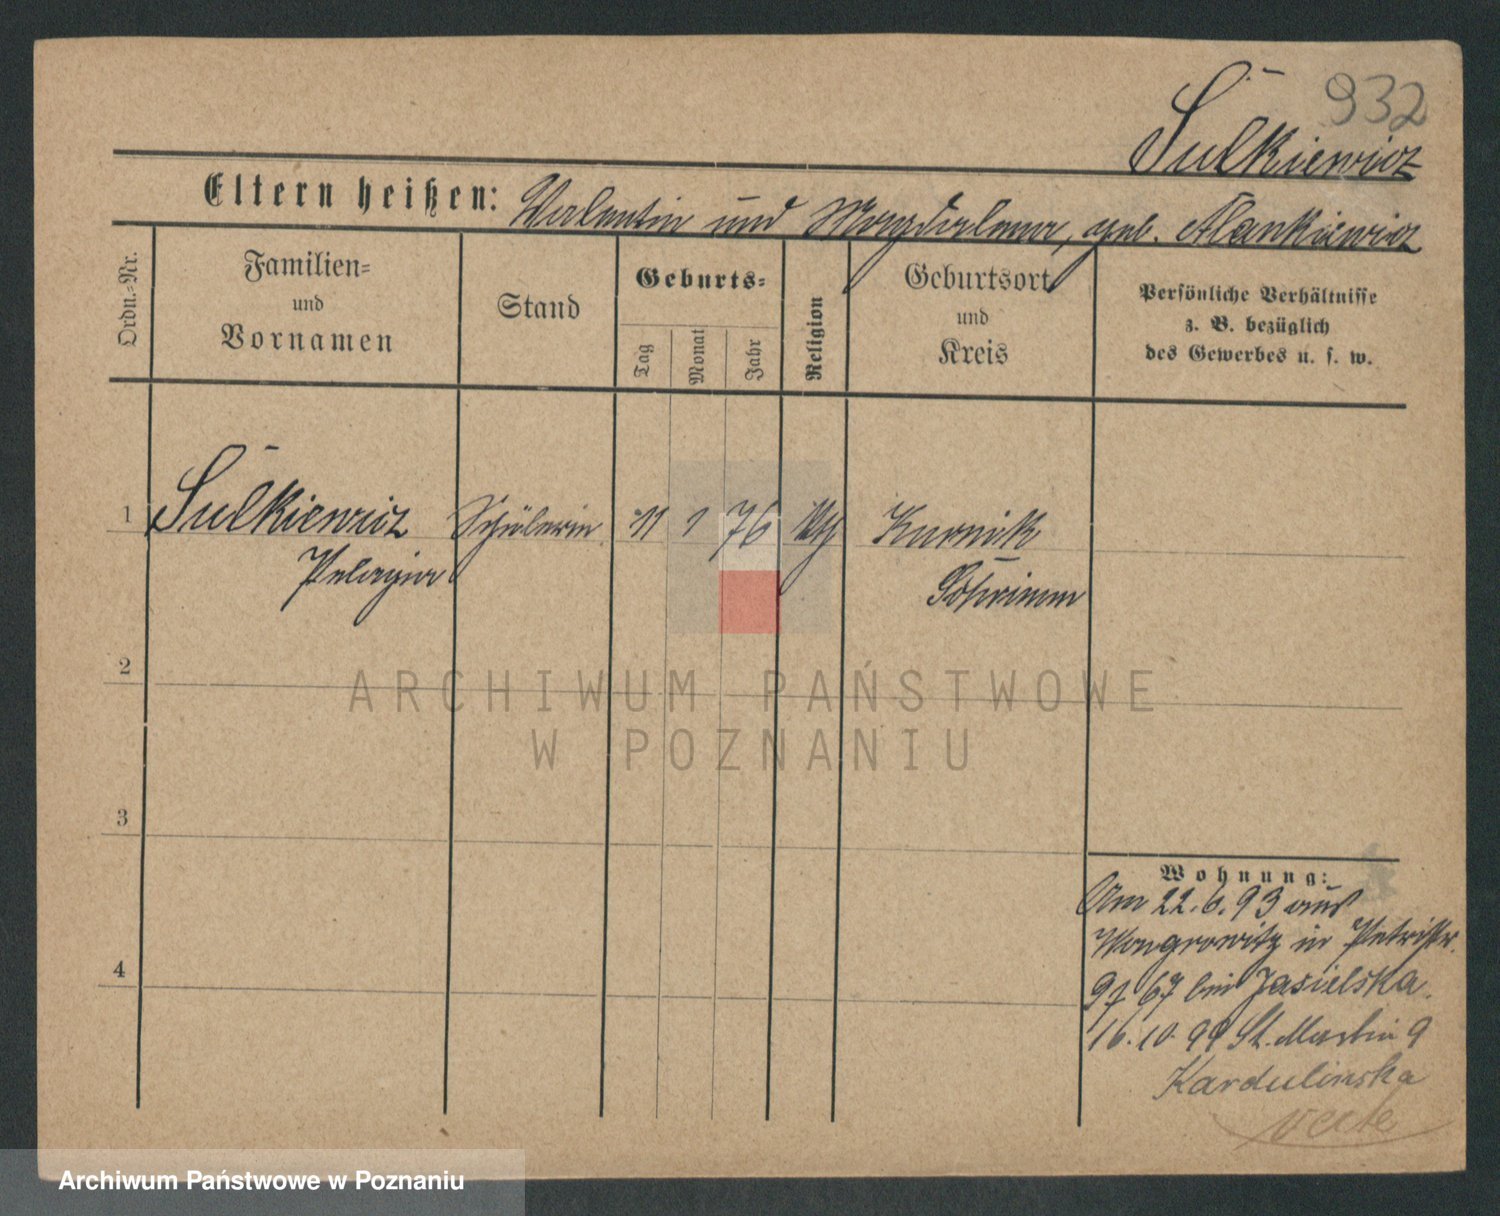 932
Sulkiewicz
Eltern heißen: Valentin und Magdalena, geb. Mankiewicz
Ordn.-Nr.
Familien-
und
Vornamen
Stand
Geburts-
Tag
Monat
Jahr
Religion
Geburtsort
und
Kreis
Persönliche Verhältnisse
z. B. bezüglich
des Gewerbes u. s. w.
1 Sulkiewicz Schülerin 11 1 76 kth Kurnik
Pelagia Schrimm
2
3
4
Wohnung:
Am 22.6.93 aus
Wongrowitz in Petristr.
67 bei Jasielska.
16.10.99 St. Martin 9
Kardulinska
verte
ARCHIWUM PAŃSTWOWE
W POZNANIU
Archiwum Państwowe w Poznaniu